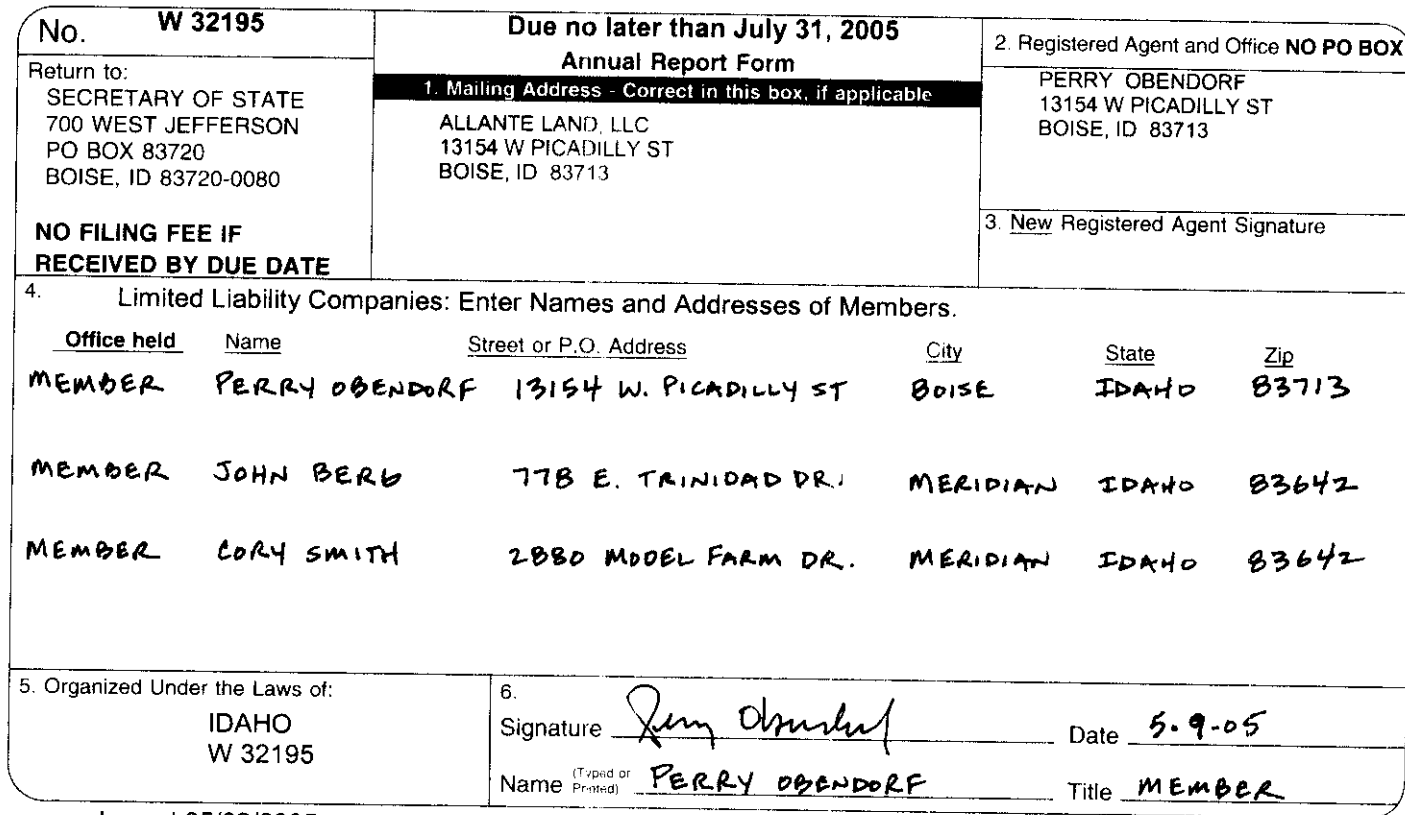 No. W 32195
Return to:
SECRETARY OF STATE
700 WEST JEFFERSON
PO BOX 83720
BOISE, ID 83720-0080
NO FILING FEE IF
RECEIVED BY DUE DATE
Due no later than July 31, 2005
Annual Report Form
1. Mailing Address - Correct in this box, if applicable
ALLANTE LAND, LLC
13154 W PICADILLY ST
BOISE, ID 83713
2. Registered Agent and Office NO PO BOX
PERRY OBENDORF
13154 W PICADILLY ST
BOISE, ID 83713
3. New Registered Agent Signature
4. Limited Liability Companies: Enter Names and Addresses of Members.
Office held Name Street or P.O. Address City State Zip
MEMBER PERRY OBENDORF 13154 W. PICADILLY ST BOISE IDAHO 83713
MEMBER JOHN BERG 778 E. TRINIDAD DR. MERIDIAN IDAHO 83642
MEMBER CORY SMITH 2880 MODEL FARM DR. MERIDIAN IDAHO 83642
5. Organized Under the Laws of:
IDAHO
W 32195
6.
Signature Perry Obendorf Date 5.9.05
Name (Typed or Printed) PERRY OBENDORF Title MEMBER